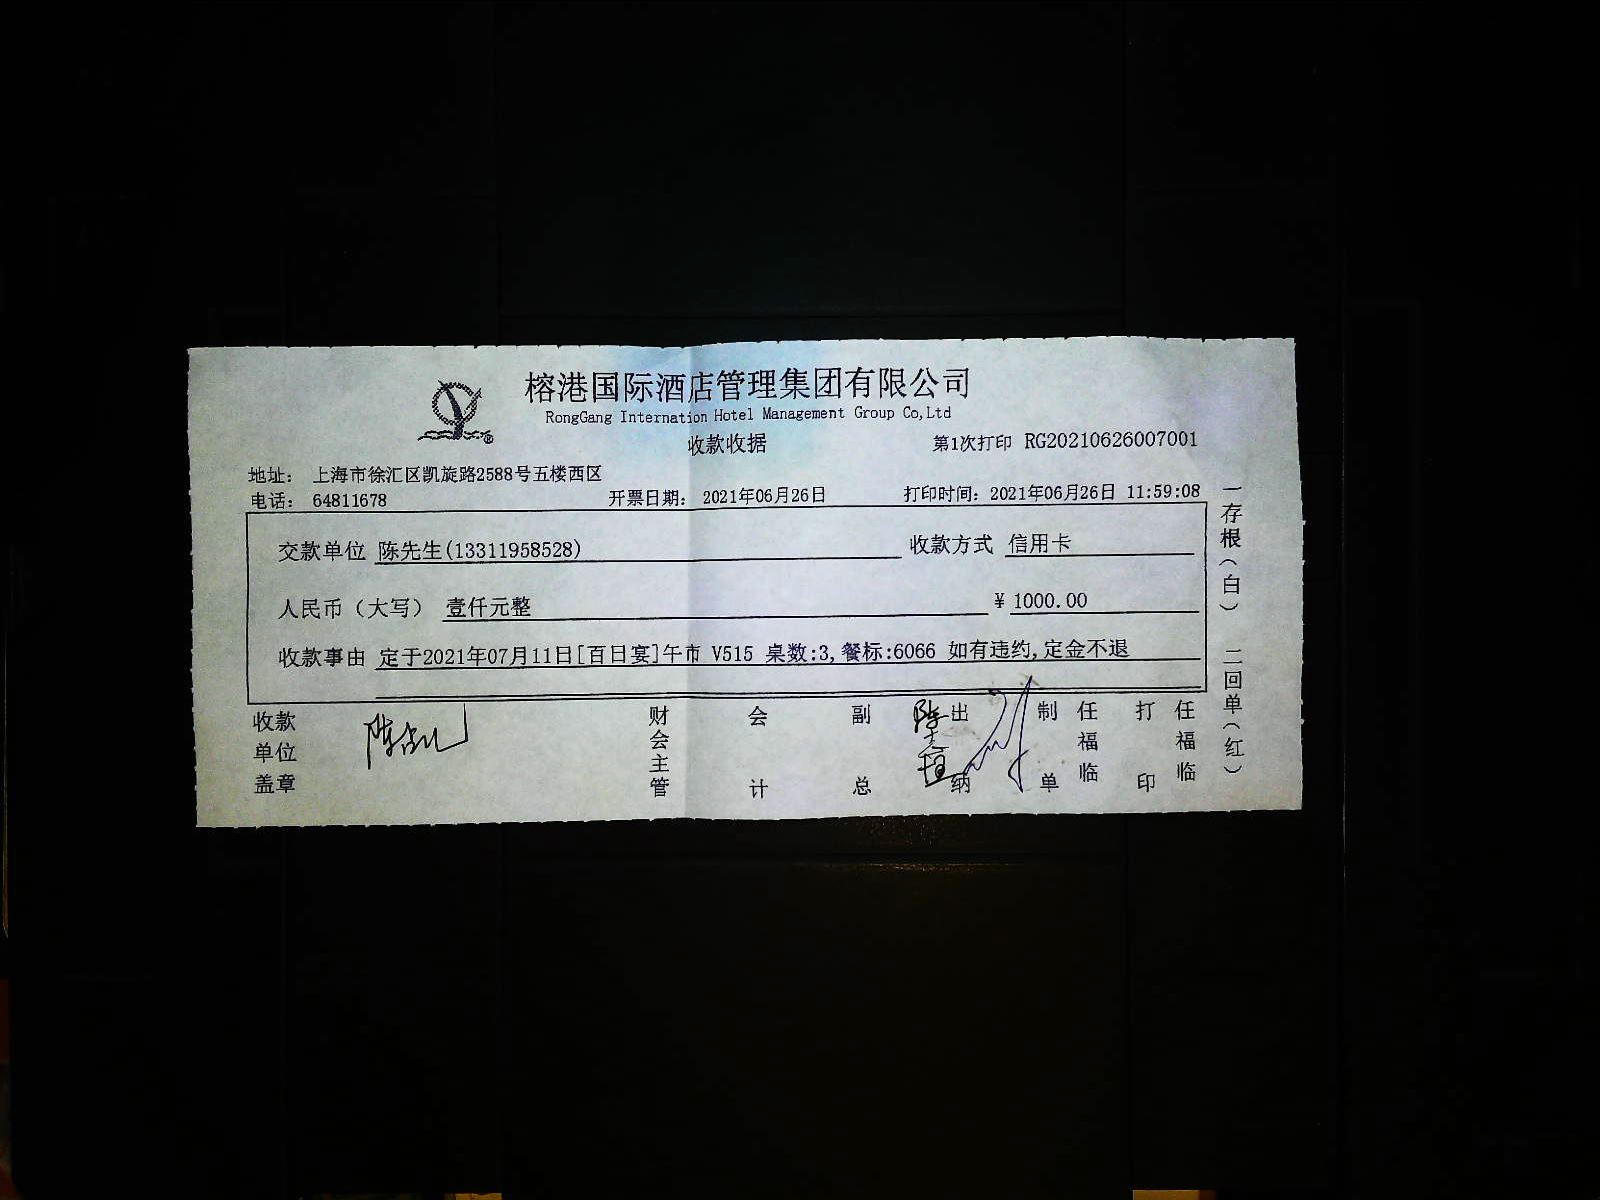 榕港国际酒店管理集团有限公司
RongGang Internation Hotel Management Group Co,Ltd
收款收据
第1次打印 RG20210626007001
地址： 上海市徐汇区凯旋路2588号五楼西区
电话： 64811678 开票日期： 2021年06月26日 打印时间：2021年06月26日 11:59:08
交款单位 陈先生(13311958528) 收款方式 信用卡
人民币（大写） 壹仟元整 ¥ 1000.00
收款事由 定于2021年07月11日[百日宴]午市 V515 桌数:3,餐标:6066 如有违约,定金不退
收款单位盖章
财会主管
会计
副总
出纳
制单 任福临
打印 任福临
一存根（白） 二回单（红）